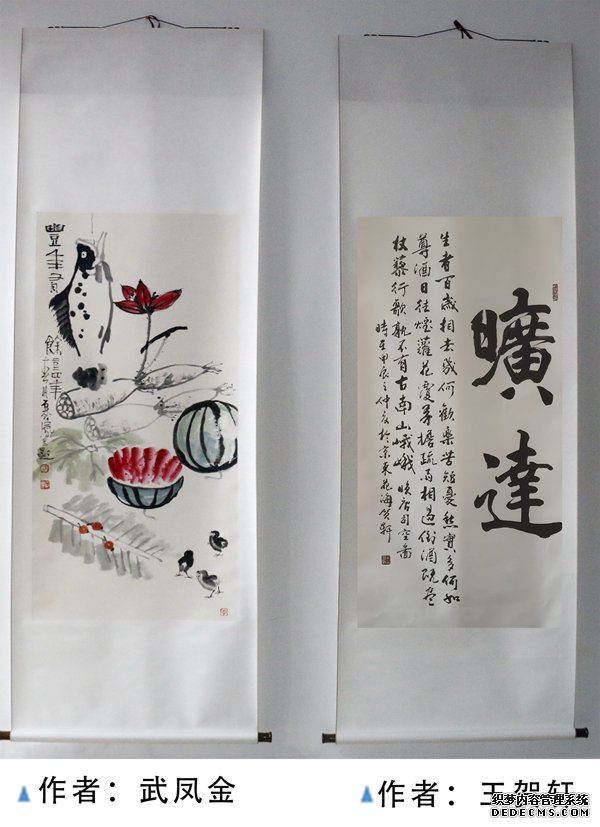 豐年有
餘
曠達
生者百歲相去幾何歡樂苦短憂愁實多何如
尊酒日往煙蘿花覆茅檐疏雨相過倒酒既盡
杖藜行歌孰不有古南山峨峨 晚唐司空圖
時在甲辰之仲夏於京東花海賀軒
作者：武凤金
作者：王贺轩
织梦内容管理系统
DEDECMS.COM